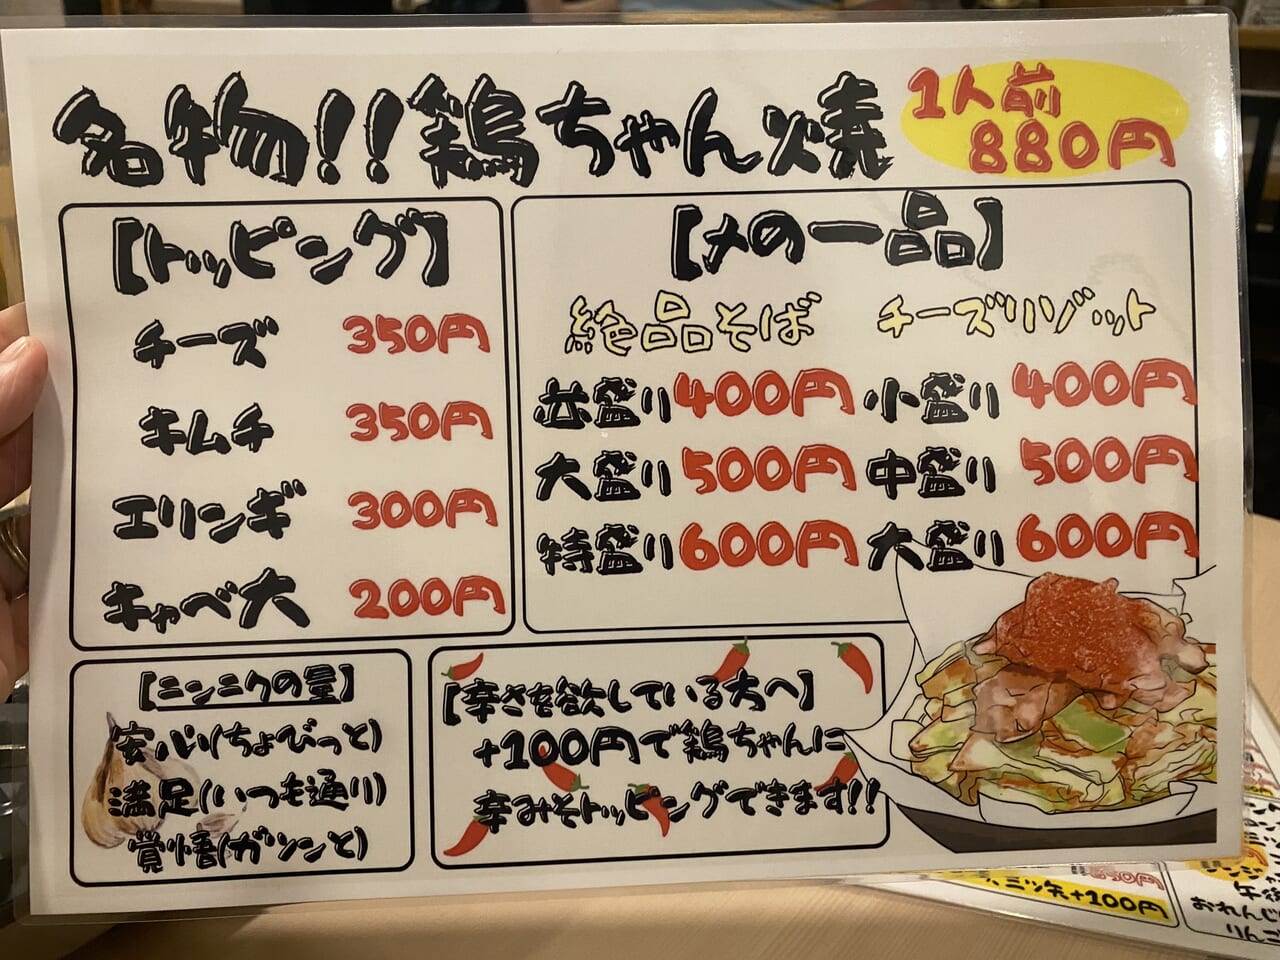 名物!!鶏ちゃん焼
1人前
880円
【トッピング】
チーズ 350円
キムチ 350円
エリンギ 300円
キャベ大 200円
【〆の一品】
絶品そば チーズリゾット
並盛り400円 小盛り400円
大盛り500円 中盛り500円
特盛り600円 大盛り600円
【ニンニクの量】
安心(ちょびっと)
満足(いつも通り)
覚悟(ガツンと)
【辛さを欲している方へ】
+100円で鶏ちゃんに
辛みそトッピングできます!!
三ツ矢+100円
おれんじ
りんご